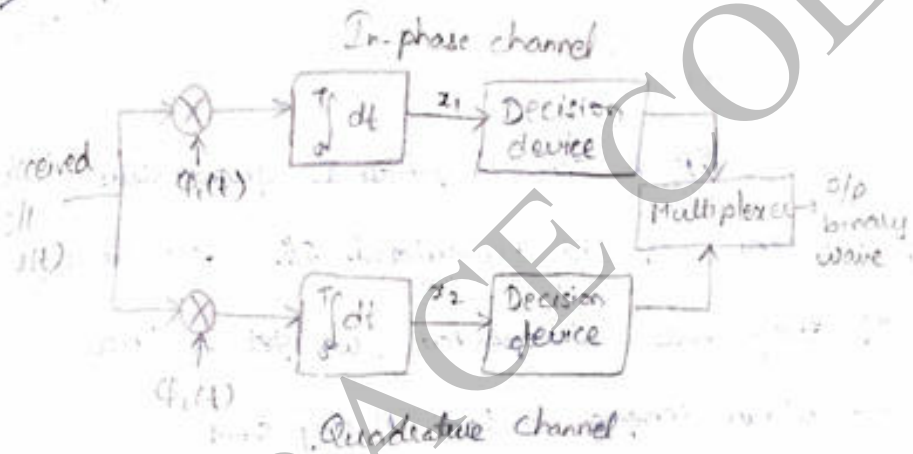 In-phase channel
T
∫ dt
0
x₁
Decision
device
ceived
φ₁(t)
Multiplexer
o/p
binary
wave
T
∫dt
0
x₂
Decision
device
φ₁(t)
Quadrature channel.
ACE COL